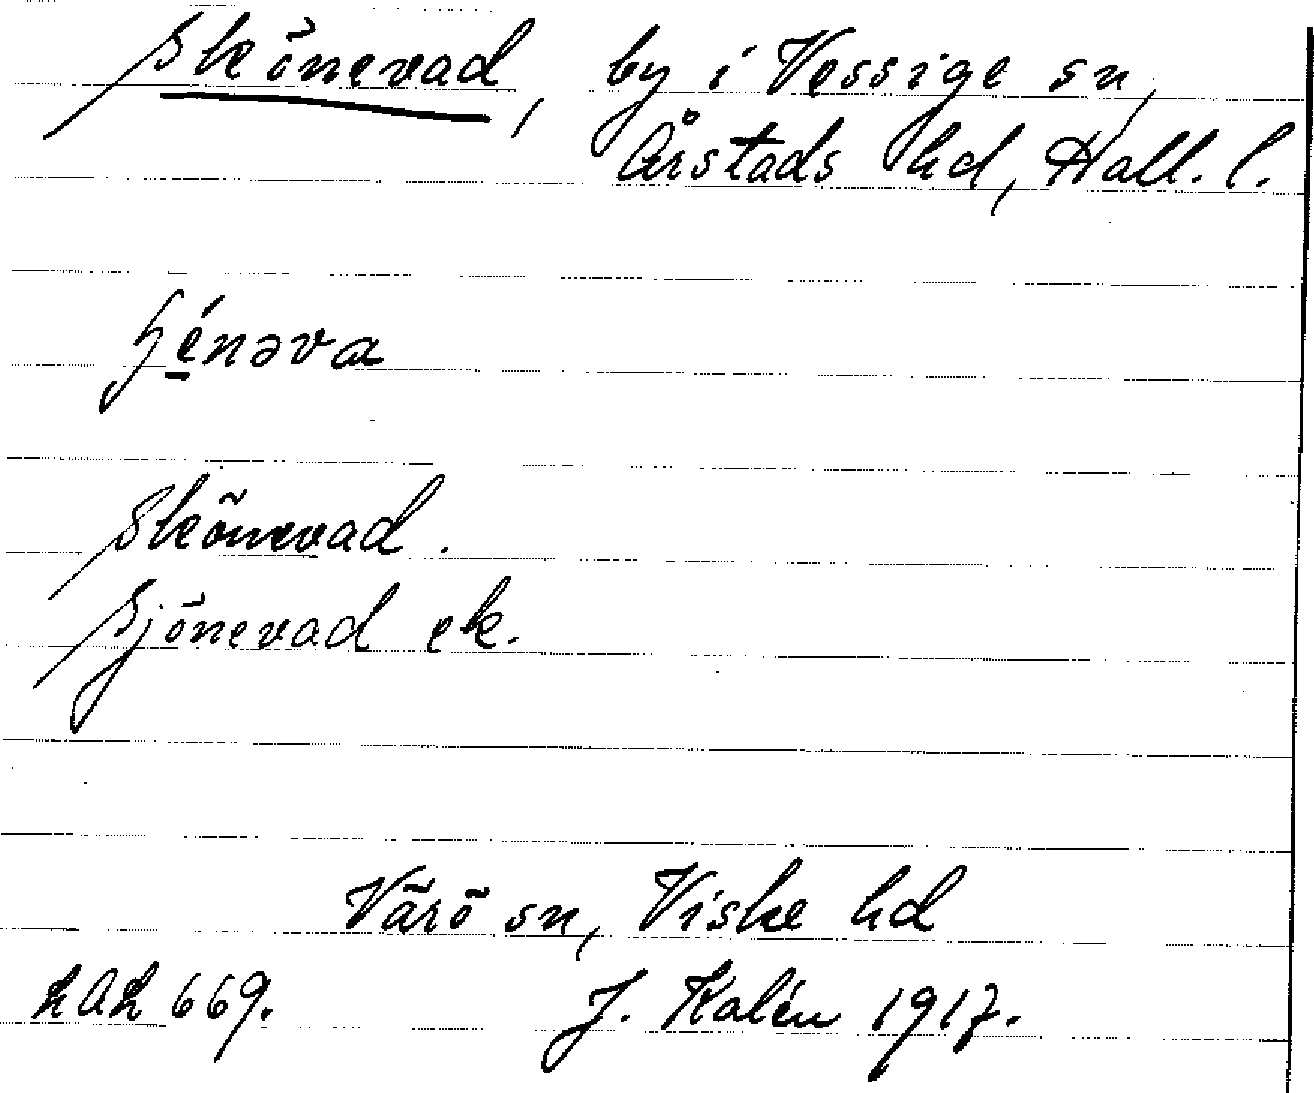 Skönevad, by i Vessige sn,
Årstads hd, Hall. l.
ɧé̱nəva
Skönevad.
Sjönevad ek.
Värö sn, Viske hd
669. J. Kalén 1917.